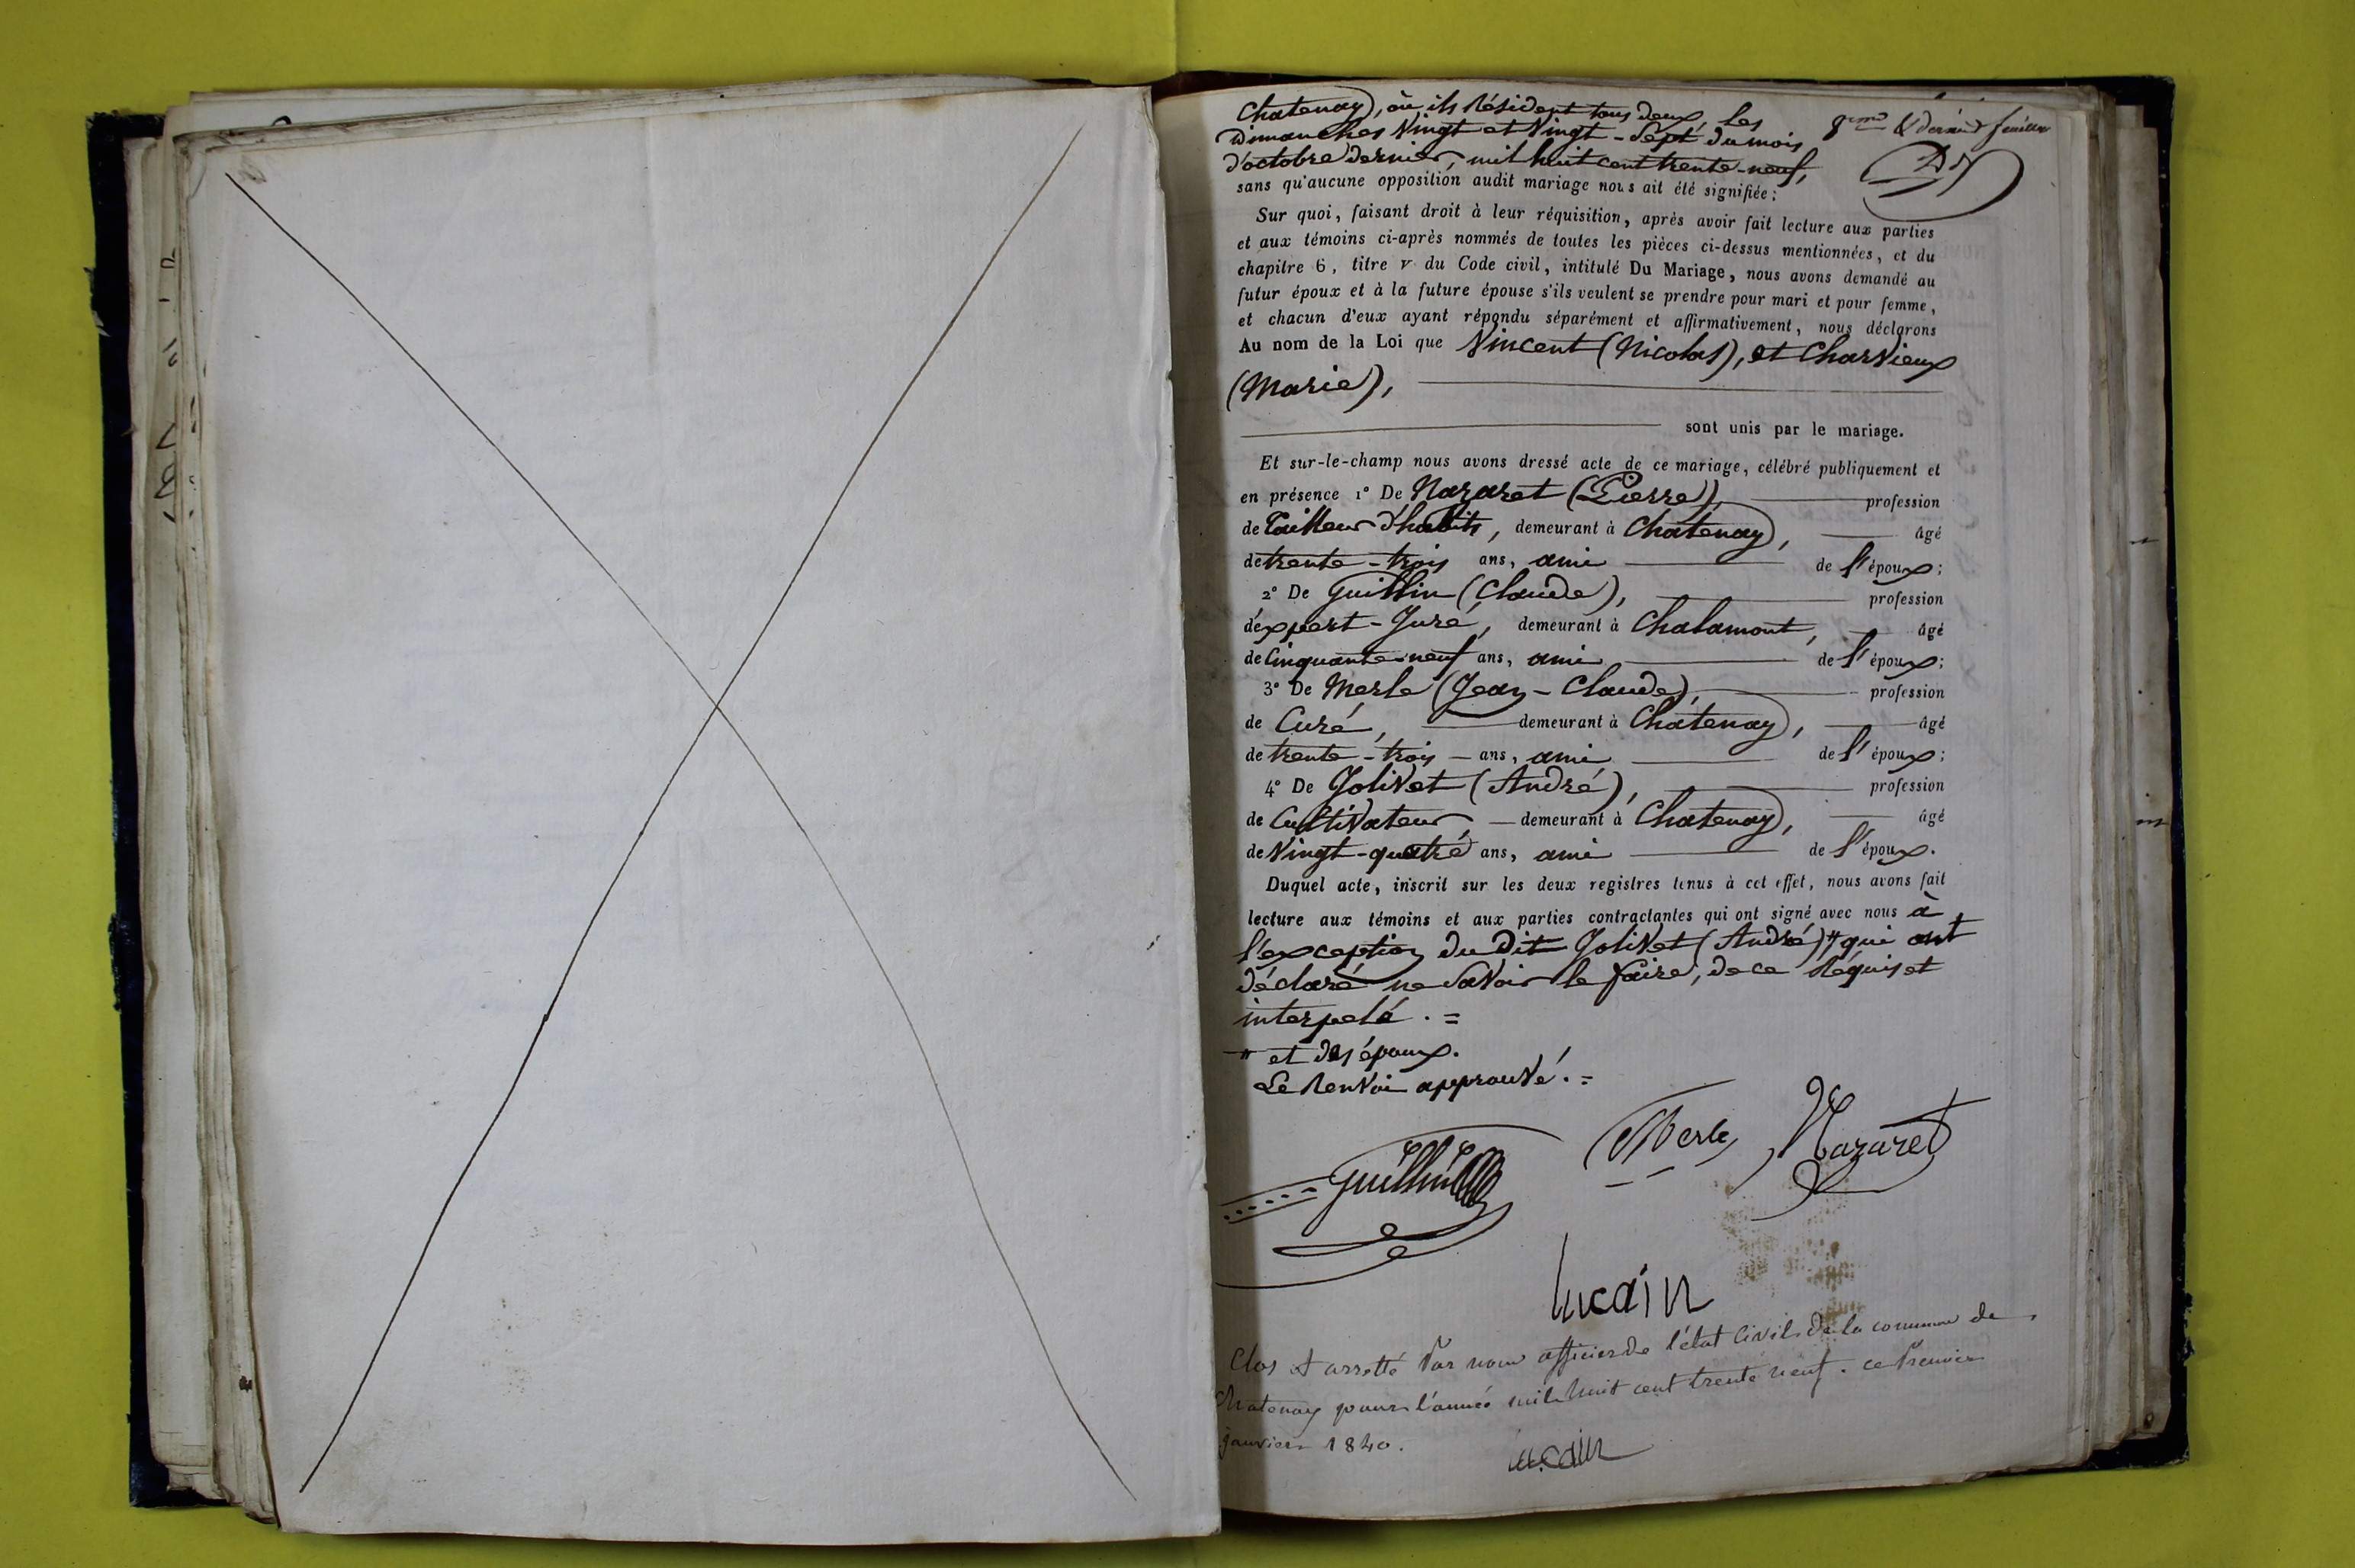 Chatenay), où ils résident tous deux, les
Dimanches vingt et vingt-Sept du mois
d'octobre dernier, mil huit cent trente-neuf,
8eme & dernier feuillet
sans qu'aucune opposition audit mariage nous ait été signifiée;
Sur quoi, faisant droit à leur réquisition, après avoir fait lecture aux parties
et aux témoins ci-après nommés de toutes les pièces ci-dessus mentionnées, et du
chapitre 6, titre v du Code civil, intitulé Du Mariage, nous avons demandé au
futur époux et à la future épouse s'ils veulent se prendre pour mari et pour femme,
et chacun d'eux ayant répondu séparément et affirmativement, nous déclarons
Au nom de la Loi que Vincent (Nicolas), et Charvieux
(Marie),
sont unis par le mariage.
Et sur-le-champ nous avons dressé acte de ce mariage, célébré publiquement et
en présence 1° De Nazaret (Pierre), profession
de Tailleur d'habits, demeurant à Chatenay), âgé
de trente-trois ans, ami de l'époux;
2° De Guillin (Claude), profession
d'expert-Juré, demeurant à Chalamont, âgé
de Cinquante-neuf ans, ami de l'époux;
3° De Merle (Jean-Claude), profession
de Curé, demeurant à Chatenay), âgé
de trente-trois ans, ami de l'époux;
4° De Jolivet (André), profession
de Cultivateur, demeurant à Chatenay), âgé
de vingt-quatre ans, ami de l'époux.
Duquel acte, inscrit sur les deux registres tenus à cet effet, nous avons fait
lecture aux témoins et aux parties contractantes qui ont signé avec nous à
l'exception du Dit Jolivet (André) # qui ont
déclaré ne savoir le faire, de ce réquis et
interpelé . =
# et des époux.
Le renvoi approuvé. =
Merle Nazaret
Guillin
Lucain
Clos & arretté Par nous officier de l'état Civil de la commune de
Chatenay pour l'année mil huit cent trente neuf. ce Premier
janvier 1840.
Lucain